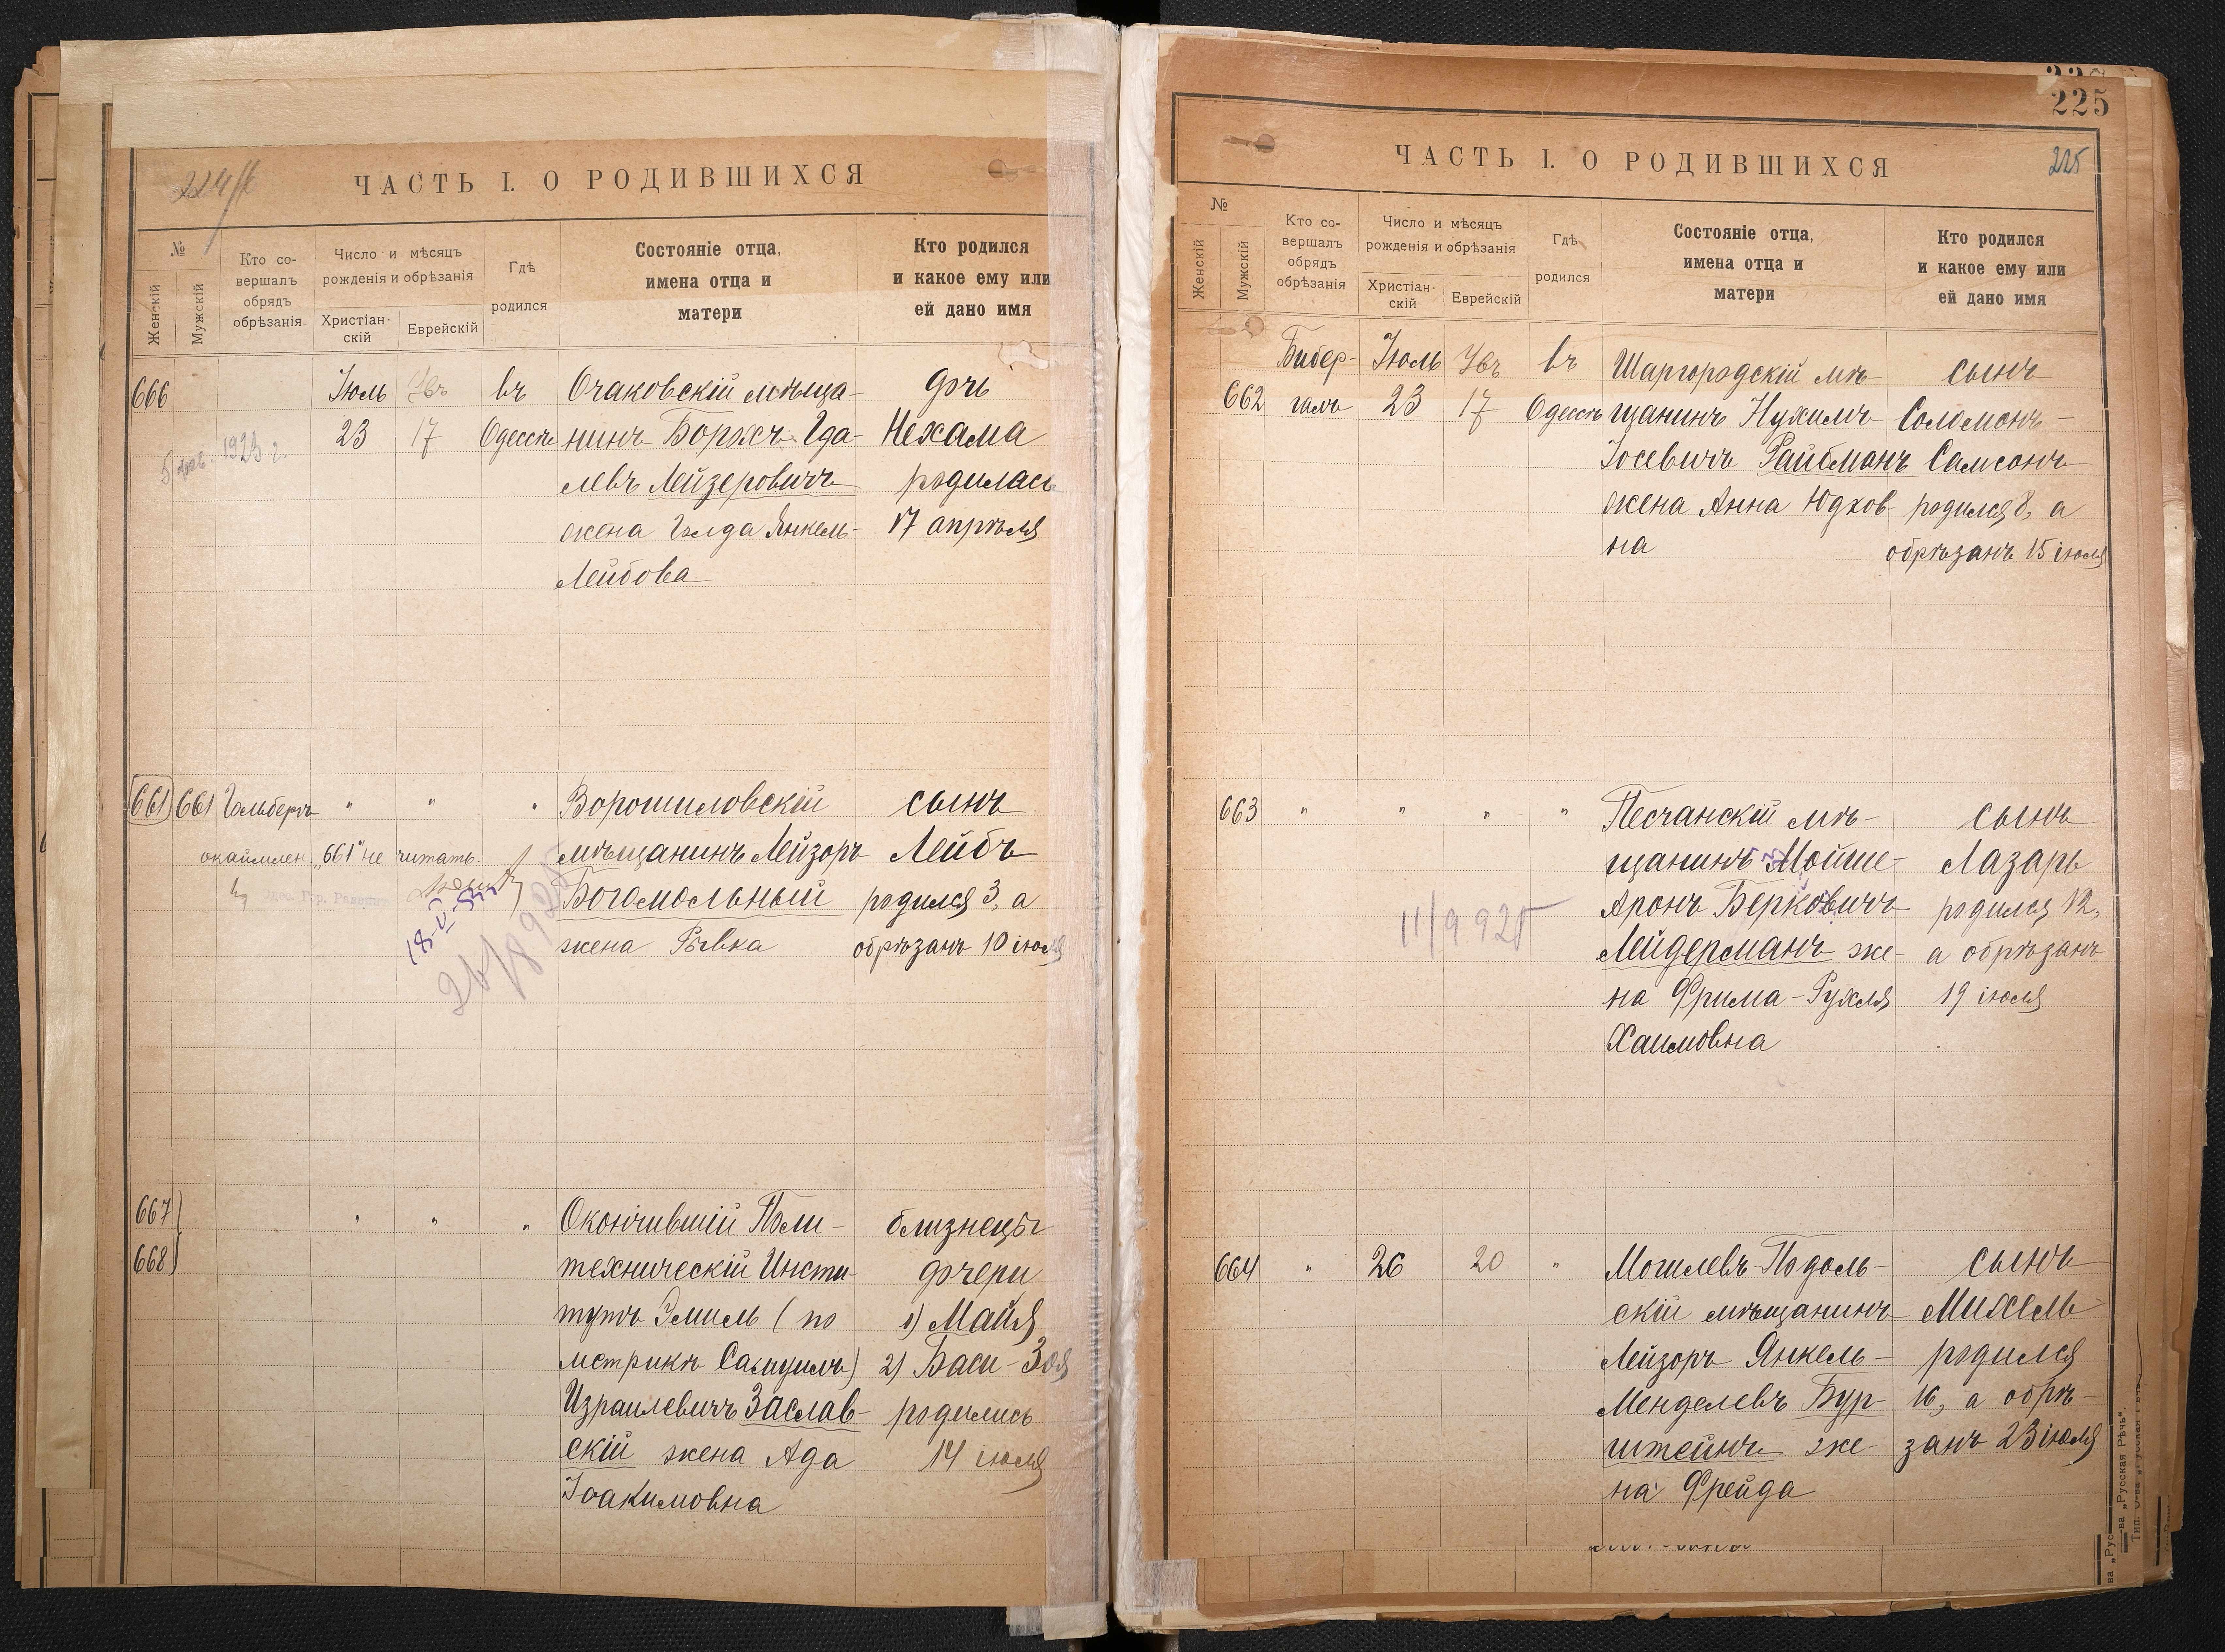 224/б
ЧАСТЬ I. О РОДИВШИХСЯ
№
Женскій
Мужскій
Кто со-
вершалъ
обрядъ
обрѣзанія
Число и мѣсяцъ
рожденія и обрѣзанія
Христіан-
скій
Еврейскій
Гдѣ
родился
Состояніе отца,
имена отца и
матери
Кто родился
и какое ему или
ей дано имя
666
Іюль
23
17
въ
Одессѣ
1923 г.
Очаковскій мѣща-
нинъ Борохъ Іда-
левъ Лейзеровичъ
жена Голда Янкель-
Лейбова
дочь
Нехама
родилась
17 апрѣля
661 661 Гольберъ " " "
окаймлен. „661" не читать.
18-V
26/8 92
Ворошиловскій
мѣщанинъ Лейзоръ
Богомольный
жена Рывка
сынъ
Лейбъ
родился 3, а
обрѣзанъ 10 іюля
667
668
" " "
Окончившій Поли-
техническій Инсти-
тутъ Эмиль (по
метрикѣ Самуилъ)
Израилевичъ Заслав-
скій жена Ада
Іоакимовна
близнецы
дочери
1) Майя
2) Баси-Зоя
родились
14 іюля
225
225
ЧАСТЬ I. О РОДИВШИХСЯ
№
Женскій
Мужскій
Кто со-
вершалъ
обрядъ
обрѣзанія
Число и мѣсяцъ
рожденія и обрѣзанія
Христіан-
скій
Еврейскій
Гдѣ
родился
Состояніе отца,
имена отца и
матери
Кто родился
и какое ему или
ей дано имя
662
Бибер-
галъ
Іюль
23
17
въ
Одессѣ
Шаргородскій мѣ-
щанинъ Нухимъ
Іосевичъ Файбманъ
жена Анна Юдков-
на
сынъ
Соломонъ-
Самсонъ
родился 8, а
обрѣзанъ 15 іюля
663 " " " "
11/9 925
Песчанскій мѣ-
щанинъ Мойше-
Аронъ Берковичъ
Лейдерманъ же-
на Фрима-Рухля
Хаимовна
сынъ
Лазарь
родился 12,
а обрѣзанъ
19 іюля
664 " 26 20 "
Могилевъ-Подоль-
скій мѣщанинъ
Лейзоръ Янкель-
Менделевъ Бур-
штейнъ же-
на Фрейда
сынъ
Михель
родился
16, а обрѣ-
занъ 23 іюля
-ва „Русская Рѣчь".